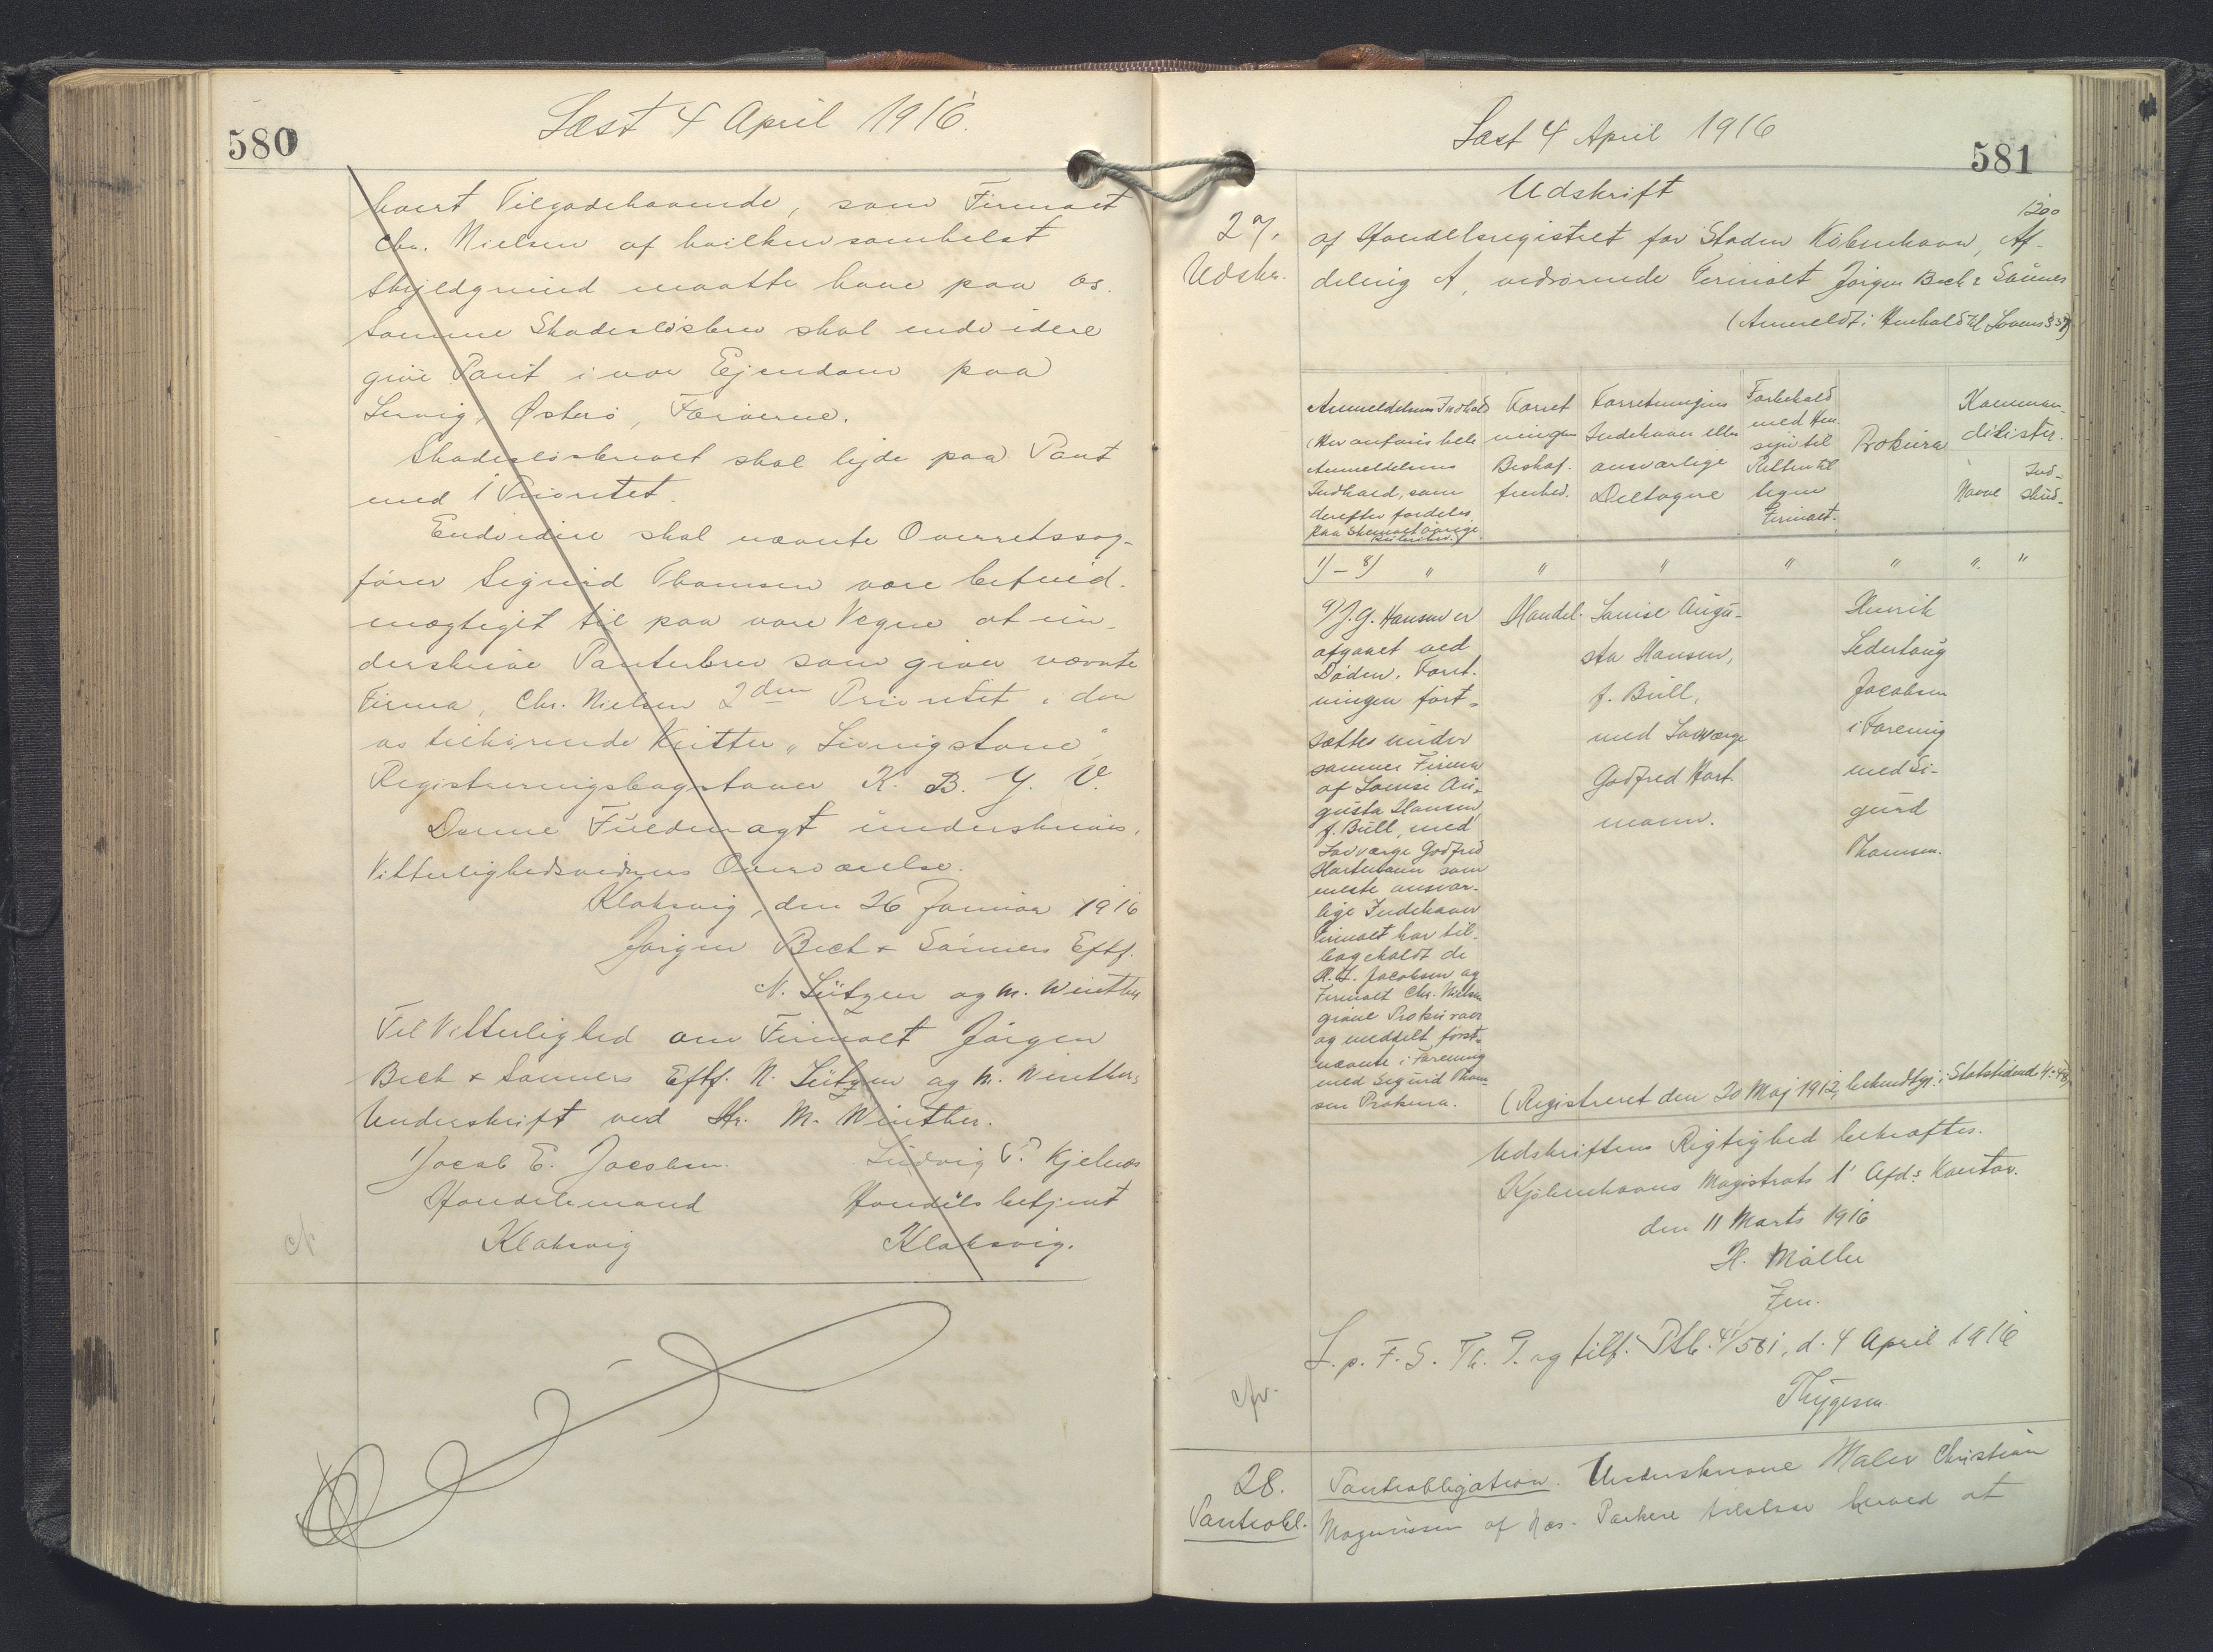 580
Læst 4 April 1916.
hvert Tilgodehavende, som Firmaet
Chr. Nielsen af hvilkensomhelst
Skyldgrund maatte have paa os.
Samme Skadesløsbrev skal endvidere
give Pant i vor Ejendom paa
Lervig, Østerø, Færøerne.
Skadesløsbrevet skal lyde paa Pant
med 1' Prioritet.
Endvidere skal nævnte Overretssag-
fører Sigurd Thomsen være befuld-
mægtiget til paa vore Vegne at un-
derskrive Panterbrev som giver nævnte
Firma, Chr. Nielsen 2den Prioritet i den
os tilhørende Kutter "Livingstone",
Registreringsbogstaver K. B. Y. V.
Denne Fuldmagt underskrives i
Vitterlighedsvidners Overværelse.
Klaksvig, den 26 Januar 1916
Jørgen Bech & Sønners Eftf.
N. Lützen og M. Winther
Til Vitterlighed om Firmaet Jørgen
Bech & Sønners Eftf. N. Lützen og M. Winthers
Underskrift ved Hr. M. Winther.
Jacob E. Jacobsen. Ludvig P. Kjelnæs
Handelsmand Handelsbetjent
Klaksvig Klaksvig.
581
Læst 4 April 1916
Udskrift
1200
27. af Handelsregistret for Staden København, Af-
Udskr. deling A, vedrørende Firmaet Jørgen Bech & Sønner
(Anmeldt i Henhold til Lovens § 37)
Anmeldelsens Indhold
(Her anføres hele
Anmeldelsens
Indhold, som
derefter fordeles
paa Skemaets øvrige
Rubrikker).
Forret
ningens
Beskaf-
fenhed.
Forretningens
Indehaver eller
ansvarlige
Deltagere
Forbehold
med Hen-
syn til
Retten til
tegne
Firmaet.
Prokura
Komman-
ditister.
Navn
Ind-
skud.
1) – 8) " " " " " " "
9) J. G. Hansen er
afgaaet ved
Døden. Forret-
ningen fort-
sættes under
samme Firma
af Louise Au-
gusta Hansen,
f. Bull, med
Lavværge Godfred
Hartmann som
eneste ansvar-
lige Indehaver
Firmaet har til-
bagekaldt de
R. L. Jacobsen og
Firmaet Chr. Nielsen
givne Prokuraer
og meddelt først-
nævnte i Forening
med Sigurd Thom-
sen Prokura.
Handel.
Louise Augu-
sta Hansen,
f. Bull,
med Lavværge
Godfred Hart-
mann.
Henrik
Ledertoug
Jacobsen
i Forening
med Si-
gurd
Thomsen.
(Registreret den 20 Maj 1912, bekendtgj. i Statstidende
Udskriftens Rigtighed bekræftes.
Kjøbenhavns Magistrats 1' Afds. Kontor.
den 11 Marts 1916
H. Møller
Fm.
L. p. F. S. Th. P. og tilf. Ptb. 4/581, d. 4 April 1916
cfr.
Thygesen.
28. Pantobligation. Underskrevne Maler Christian
Pantobl. Magnussen af Næs. Parkere tilstaar herved at